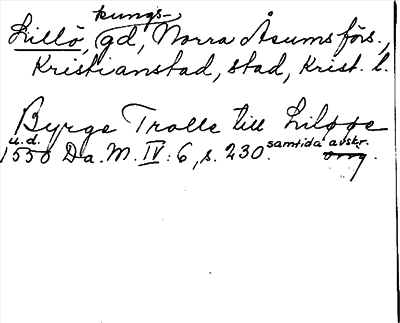 kungs-
Lillö, gd, Norra Åsums förs.,
Kristianstad, stad, Krist. l.
Byrge Trolle till Liløøe
u.d.
1550 Da. M. IV: 6, s. 230. samtida avskr.
orig.